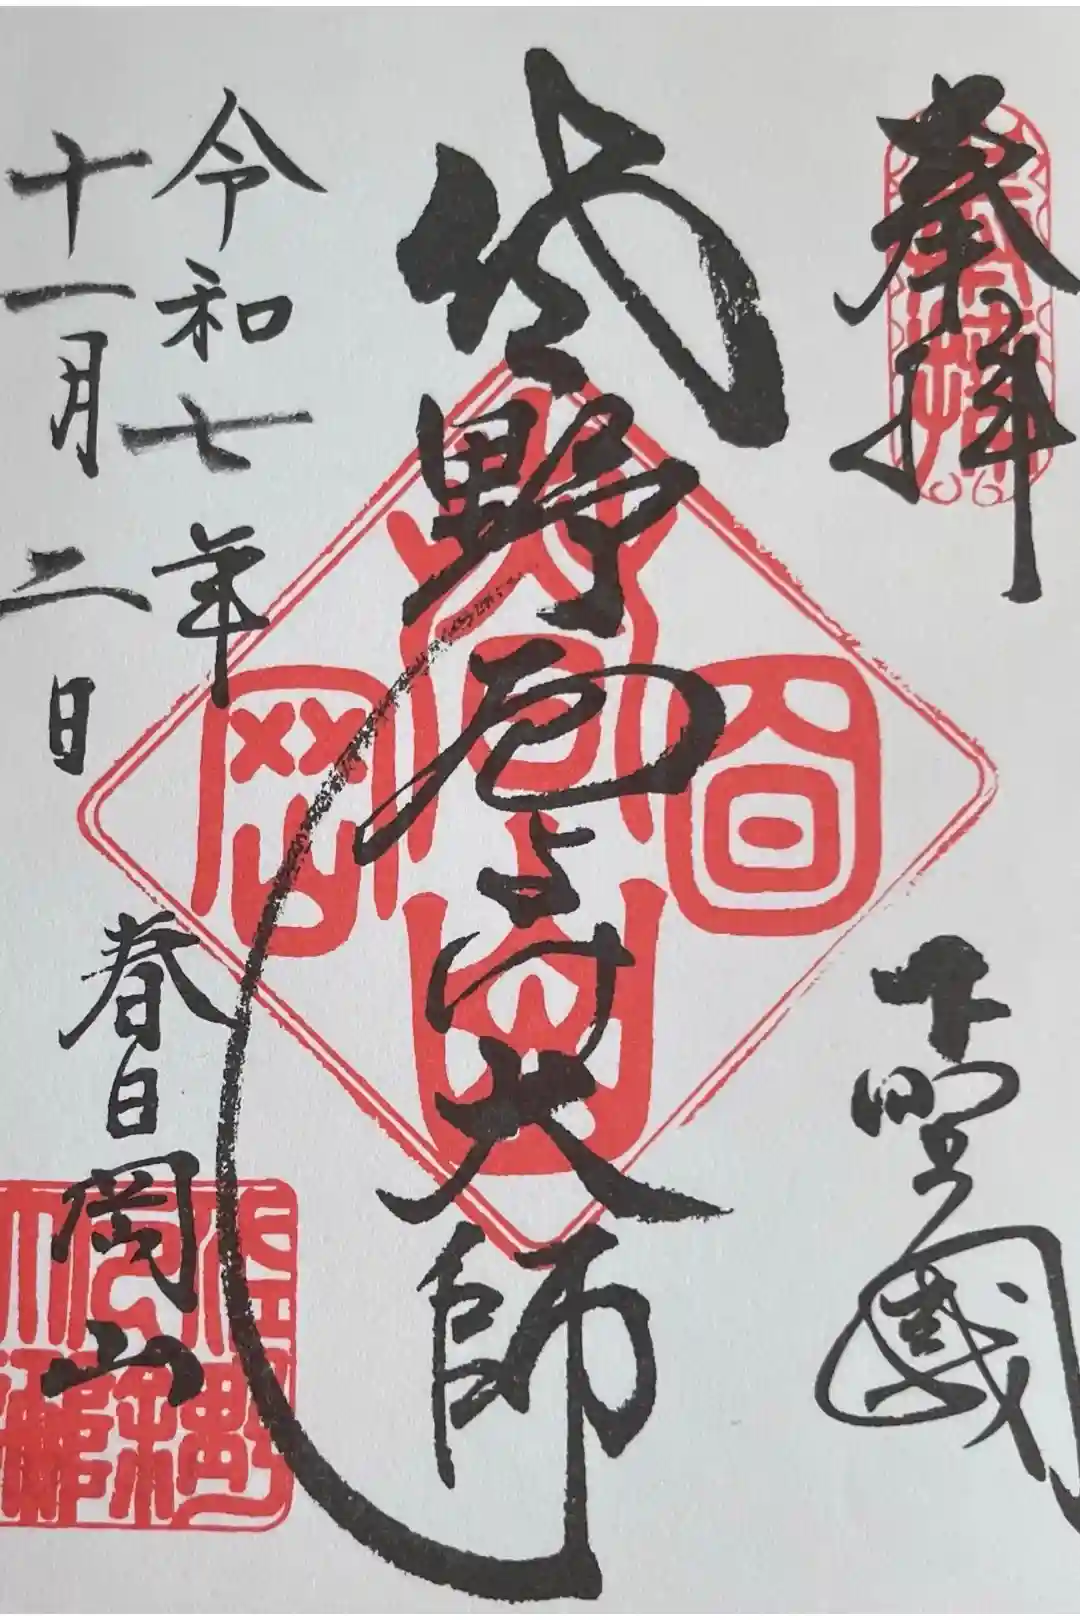 奉拝
下野國
佐野厄よけ大師
令和七年
十一月二日
春日岡山